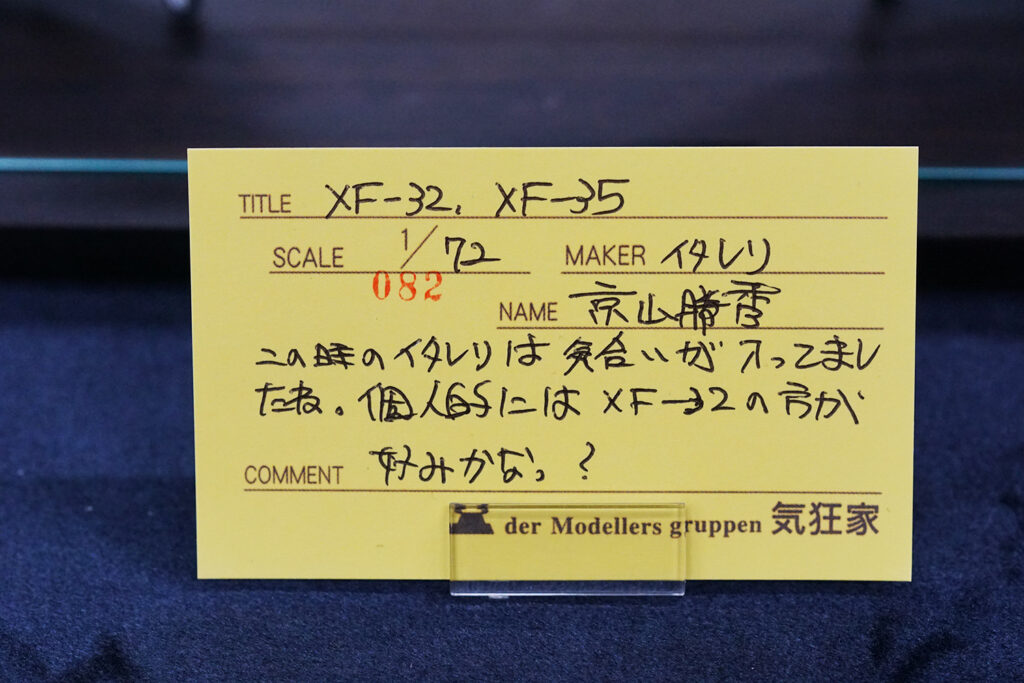 TITLE XF-32, XF-35
SCALE 1/72 MAKER イタレリ
082
NAME 京山勝雪
この時のイタレリは気合いが入ってまし
たね。個人的にはXF-32の方が
好みかなっ?
COMMENT
der Modellers gruppen 気狂家